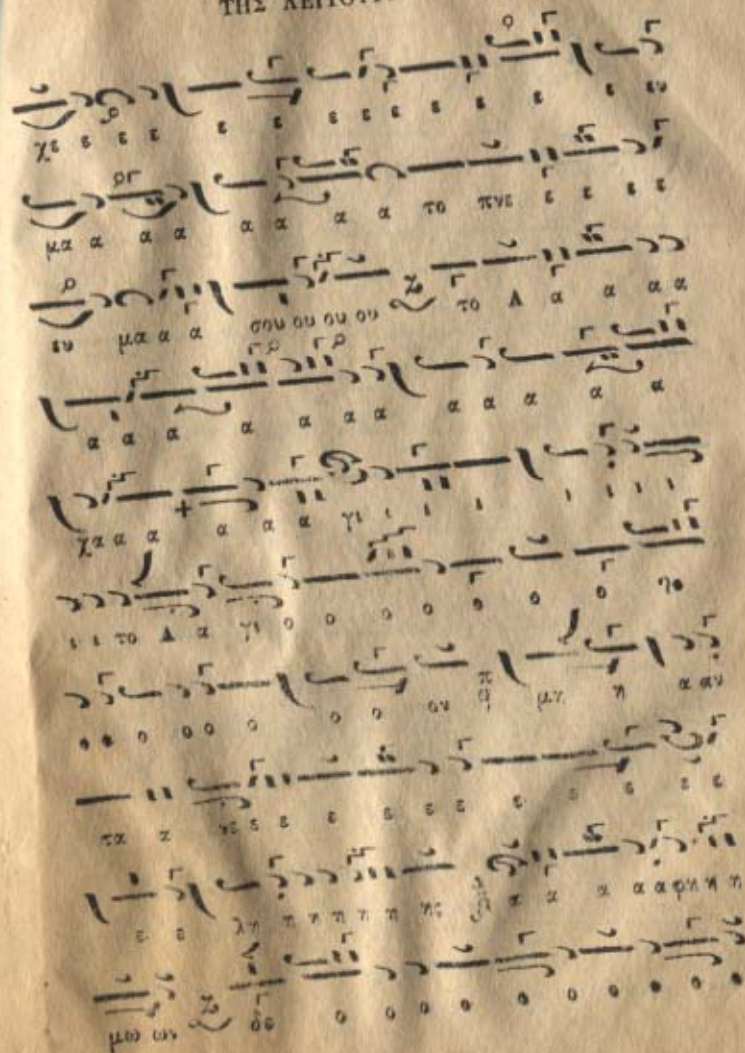 ΤΗΣ ΛΕΙΤΟΥΡ
χε ε ε ε ε ε ε ε ε ε ε ε ε ευ
μα α α α α α α α το πνε ε ε ε ε
ευ μα α α σου ου ου ου το Α α α α α
α α α α α α α α α α α α
χα α α α α α γι ι ι ι ι ι ι ι
ι ι το Α α γι ο ο ο ο ο ο ο ο
ο ο ο ο ο ο ο ο ον μη η α αν
τα α νε ε ε ε ε ε ε ε ε ε ε
ε ε λη η η η η η α α α α α φη η η
μω ων ο ο ο ο ο ο ο ο ο